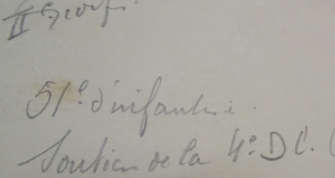 II
51e d'infanterie.
Soutien de la 4e D C. (